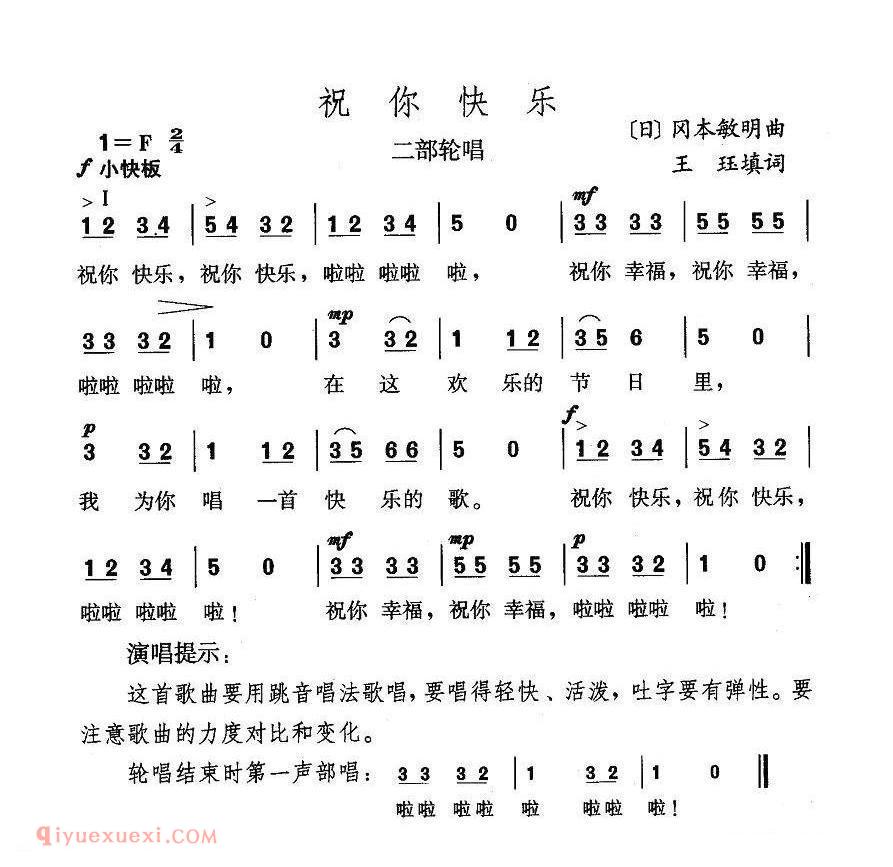 祝 你 快 乐
1=F 2/4
二部轮唱
〔日〕冈本敏明曲
f 小快板
王 珏填词
> I >
mf
1 2 3 4 | 5 4 3 2 | 1 2 3 4 | 5 0 | 3 3 3 3 | 5 5 5 5 |
祝你 快乐，祝你 快乐，啦啦 啦啦 啦， 祝你 幸福，祝你 幸福，
mp
3 3 3 2 | 1 0 | 3 3 2 | 1 1 2 | 3 5 6 | 5 0 |
啦啦 啦啦 啦， 在 这 欢 乐的 节 日 里，
p f > >
3 3 2 | 1 1 2 | 3 5 6 6 | 5 0 | 1 2 3 4 | 5 4 3 2 |
我 为你 唱 一首 快 乐的 歌。 祝你 快乐，祝你 快乐，
mf mp p
1 2 3 4 | 5 0 | 3 3 3 3 | 5 5 5 5 | 3 3 3 2 | 1 0 :‖
啦啦 啦啦 啦！ 祝你 幸福，祝你 幸福，啦啦 啦啦 啦！
演唱提示：
这首歌曲要用跳音唱法歌唱，要唱得轻快、活泼，吐字要有弹性。要
注意歌曲的力度对比和变化。
轮唱结束时第一声部唱： 3 3 3 2 | 1 3 2 | 1 0 ‖
啦啦 啦啦 啦 啦啦 啦！
Qiyuexuexi.COM